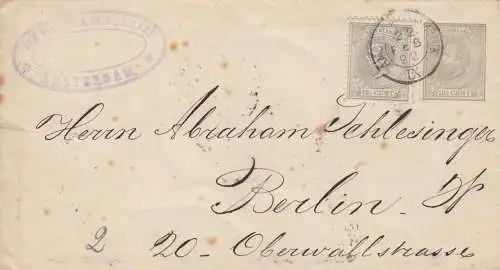 AMSTERDAM.
Herrn Abraham Schlesinger
Berlin. W
2 20 - Oberwallstrasse